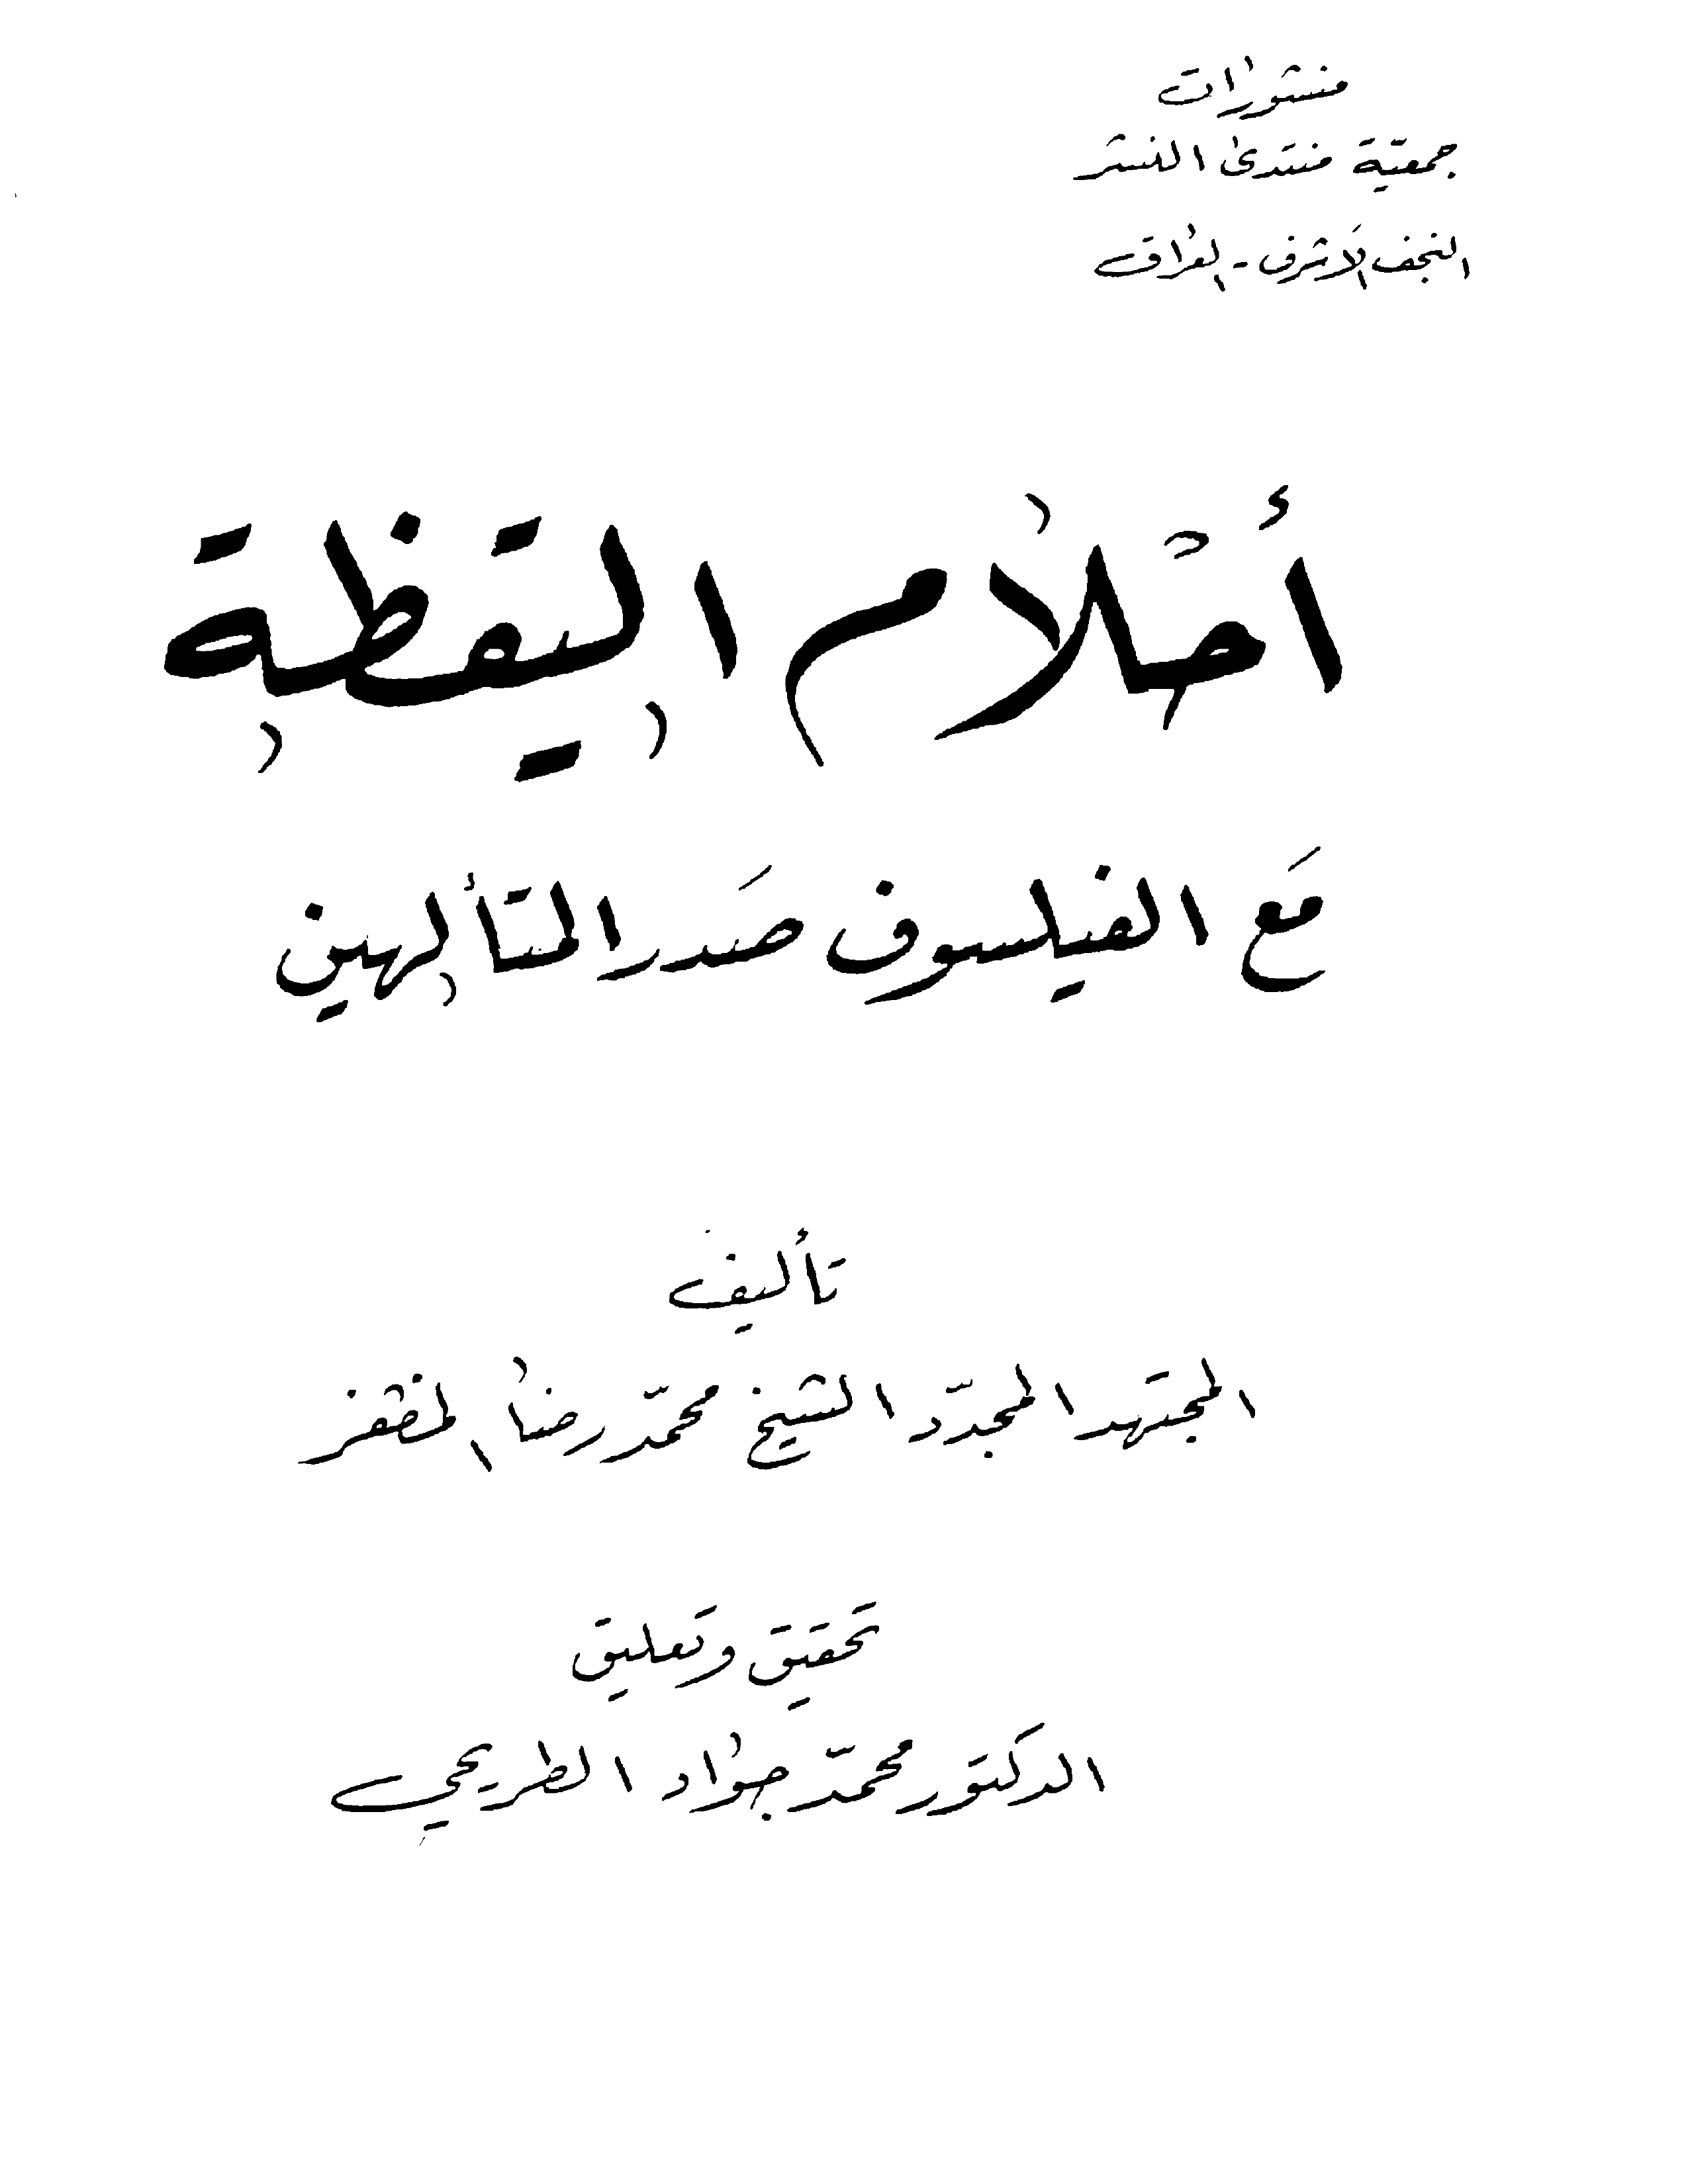 منشورات
جمعية منتدى النشر
النجف الأشرف - العراق
أحلام اليقظة
مع الفيلسوف صدر المتألهين
تأليف
المجتهد المجدّد الشيخ محمّد رضا المظفر
تحقيق وتعليق
الدكتور محمّد جواد الطريحي